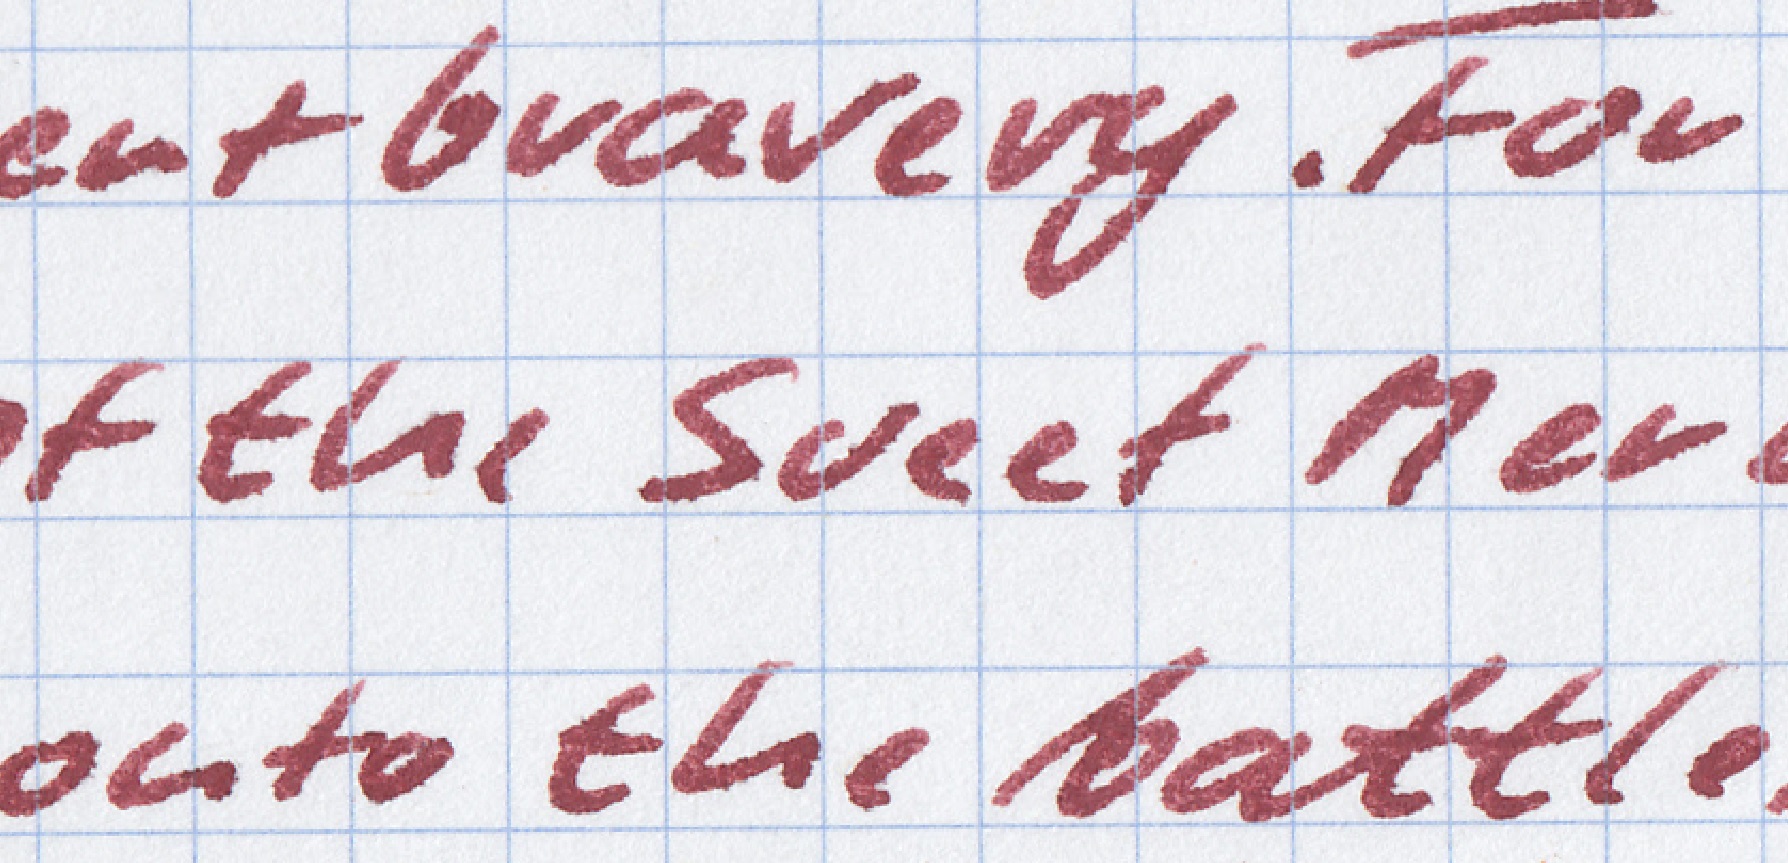 ent bravery. For
of the Sweet Mere
onto the battle